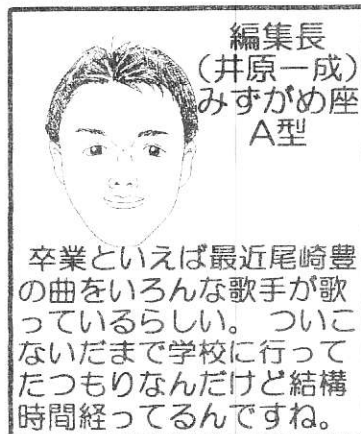 編集長
（井原一成）
みずがめ座
A型
卒業といえば最近尾崎豊
の曲をいろんな歌手が歌
っているらしい。 ついこ
ないだまで学校に行って
たつもりなんだけど結構
時間経ってるんですね。